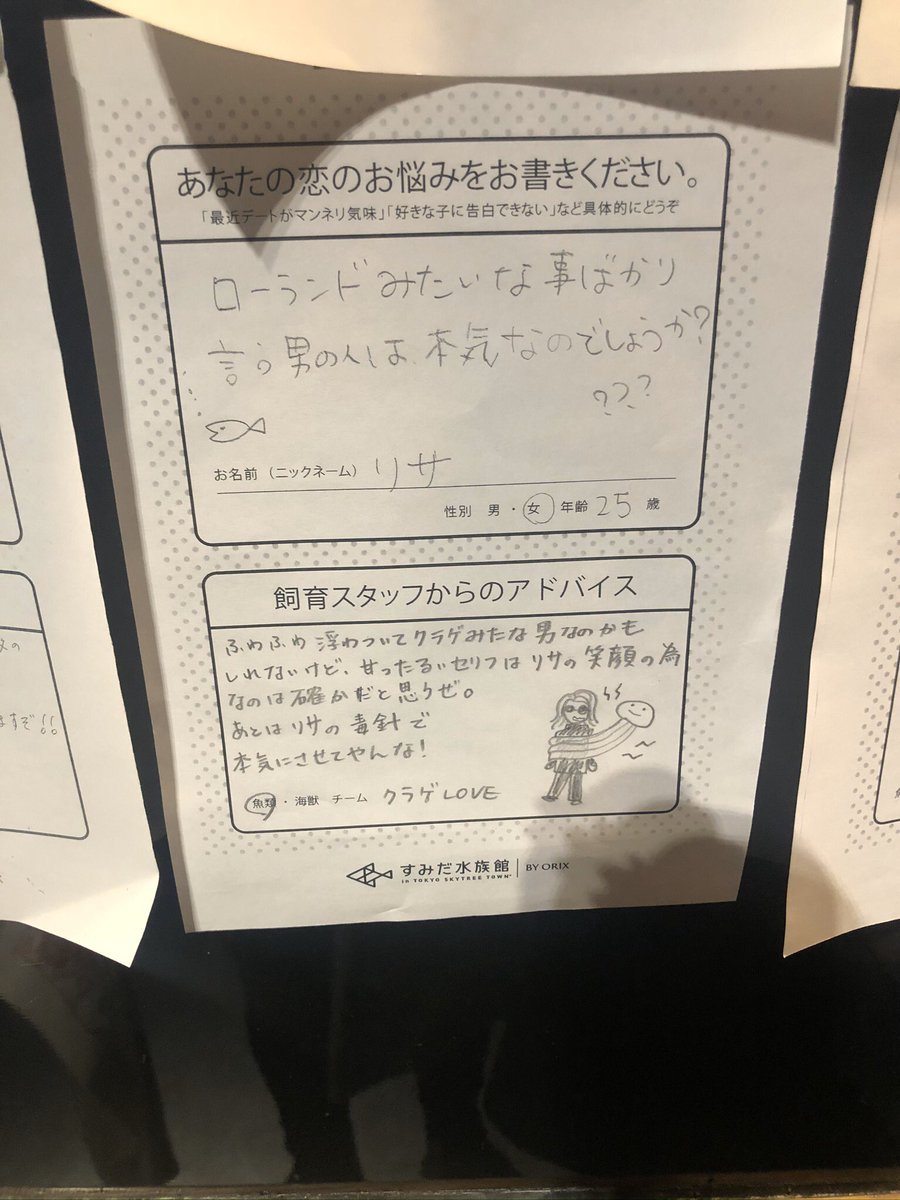 あなたの恋のお悩みをお書きください。
「最近デートがマンネリ気味」「好きな子に告白できない」など具体的にどうぞ
ローランドみたいな事ばかり
言う男の人は、本気なのでしょうか?
???
お名前（ニックネーム） リサ
性別 男・女 年齢 25 歳
飼育スタッフからのアドバイス
ふわふわ浮わついてクラゲみたな男なのかも
しれないけど、甘ったるいセリフはリサの笑顔の為
なのは確かだと思うぜ。
あとはリサの毒針で
本気にさせてやんな!
魚類・海獣 チーム クラゲLOVE
すみだ水族館 BY ORIX
in TOKYO SKYTREE TOWN
ますぞ!!